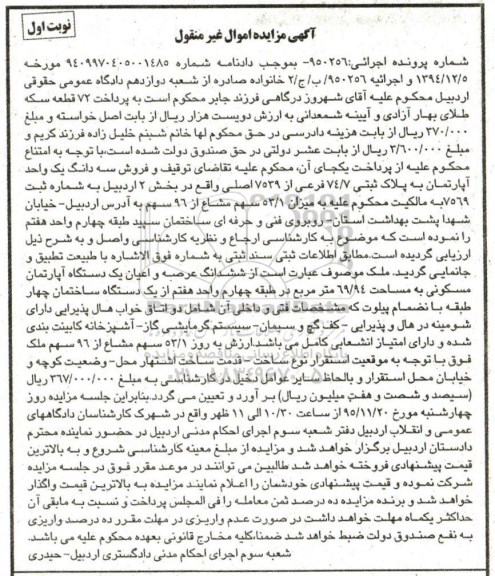 نوبت اول
آگهی مزایده اموال غیر منقول
شماره پرونده اجرائی:۹۵۰۲۵۶- بموجب دادنامه شماره ۹۴۰۹۹۷۰۴۰۵۰۰۱۴۸۵ مورخه
۱۳۹۴/۱۲/۵ و اجرائیه ۹۵۰۲۵۶/ب/ج/۲ خانواده صادره از شعبه دوازدهم دادگاه عمومی حقوقی
اردبیل محکوم علیه آقای شهروز درگاهی فرزند جابر محکوم است به پرداخت ۷۲ قطعه سکه
طلای بهار آزادی و آیینه شمعدانی به ارزش دویست هزار ریال از بابت اصل خواسته و مبلغ
۳۷۰/۰۰۰ ریال از بابت هزینه دادرسی در حق محکوم لها خانم شبنم خلیل زاده فرزند کریم و
مبلغ ۳/۶۰۰/۰۰۰ ریال از بابت عشر دولتی در حق صندوق دولت شده است،با توجه به امتناع
محکوم علیه از پرداخت یکجای آن، محکوم علیه تقاضای توقیف و فروش سه دانگ یک واحد
آپارتمان به پلاک ثبتی ۷۴/۷ فرعی از ۷۵۳۹ اصلی واقع در بخش ۲ اردبیل به شماره ثبت
۷۵۶۹به مالکیت محکوم علیه به میزان ۵۳/۱ سهم مشاع از ۹۶ سهم به آدرس اردبیل- خیابان
شهدا پشت بهداشت استان- روبروی فنی و حرفه ای ساختمان سپید طبقه چهارم واحد هفتم
را نموده است که موضوع به کارشناسی ارجاع و نظریه کارشناسی واصل و به شرح ذیل
ارزیابی گردیده است.مطابق اطلاعات ثبتی سند ثبتی به شماره فوق الاشاره با طبیعت تطبیق و
جانمایی گردید. ملک موصوف عبارت است از ششدانگ عرصه و اعیان یک دستگاه آپارتمان
مسکونی به مساحت ۶۹/۹۴ متر مربع در طبقه چهارم واحد هفتم از یک دستگاه ساختمان چهار
طبقه با نضمام پیلوت که مشخصات فنی و داخلی آن شامل دو اتاق خواب هال پذیرایی دارای
شومینه در هال و پذیرایی - کف گچ و سیمان- سیستم گرمایشی گاز- آشپزخانه کابینت بندی
شده و دارای امتیاز انشعابی کامل می باشد.ارزش به روز ۵۳/۱ سهم مشاع از ۹۶ سهم ملک
فوق با توجه به موقعیت استقرار نوع ساخت- قدمت ساخت اشتهار محل- وضعیت کوچه و
خیابان محل استقرار و بالحاظ سایر عوامل دخیل در کارشناسی به مبلغ ۳۶۷/۰۰۰/۰۰۰ ریال
(سیصد و شصت و هفت میلیون ریال) بر آورد و تعیین می گردد.بنابراین جلسه مزایده روز
چهارشنبه مورخ ۹۵/۱۱/۲۰ از ساعت ۱۰/۳۰ الی ۱۱ ظهر واقع در شهرک کارشناسان دادگاههای
عمومی و انقلاب اردبیل دفتر شعبه سوم اجرای احکام مدنی اردبیل در حضور نماینده محترم
دادستان اردبیل برگزار خواهد شد و مزایده از مبلغ معینه کارشناسی شروع و به بالاترین
قیمت پیشنهادی فروخته خواهد شد طالبین می توانند در موعد مقرر فوق در جلسه مزایده
شرکت نموده و قیمت پیشنهادی خودشان را اعلام نمایند مزایده به بالاترین قیمت واگذار
خواهد شد و برنده مزایده ده درصد ثمن معامله را فی المجلس پرداخت و نسبت به مابقی آن
حداکثر یکماه مهلت خواهد داشت در صورت عدم واریزی در مهلت مقرر ده درصد واریزی
به نفع صندوق دولت ضبط خواهد شد ضمنا،کلیه مخارج قانونی بعهده محکوم علیه می باشد.
شعبه سوم اجرای احکام مدنی دادگستری اردبیل- حیدری